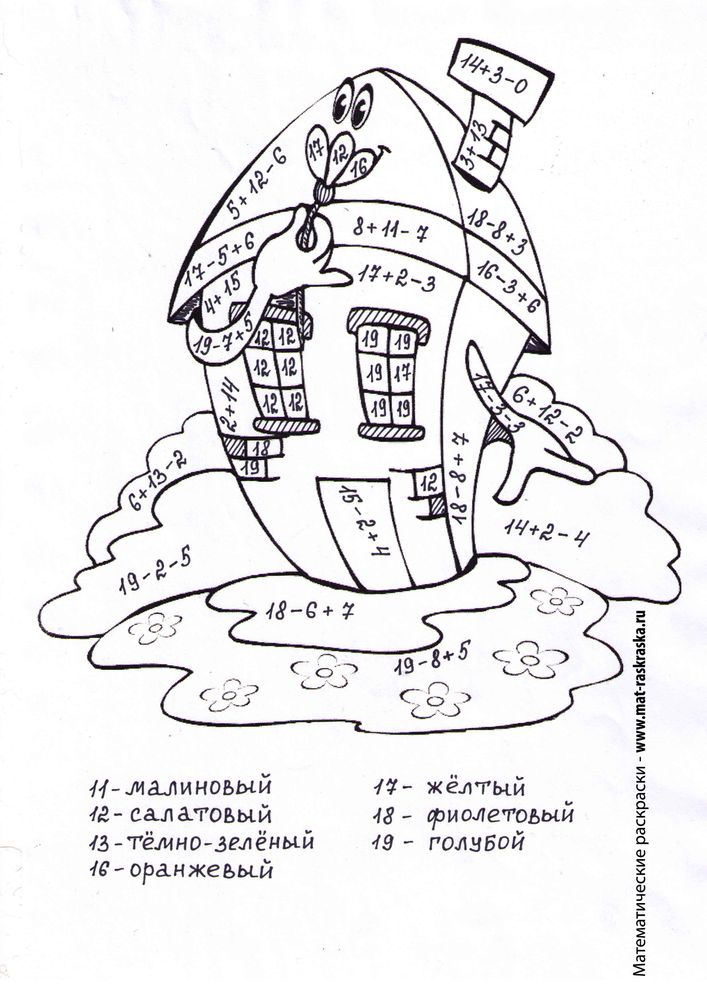 14+3-0
3+13
17
12
16
5+12-6
8+11-7
18-8+3
17-5+6
17+2-3
16-3+6
4+15
19-7+5
12 12
12 12
12 12
19 19
19 17
19 19
2+14
17-3-3
6+12-2
18
19
12
18-8+7
15-2+4
6+13-2
14+2-4
19-2-5
18-6+7
19-8+5
11-малиновый
12-салатовый
13-тёмно-зелёный
16-оранжевый
17- жёлтый
18 - фиолетовый
19 - голубой
Математические раскраски - www.mat-raskraska.ru